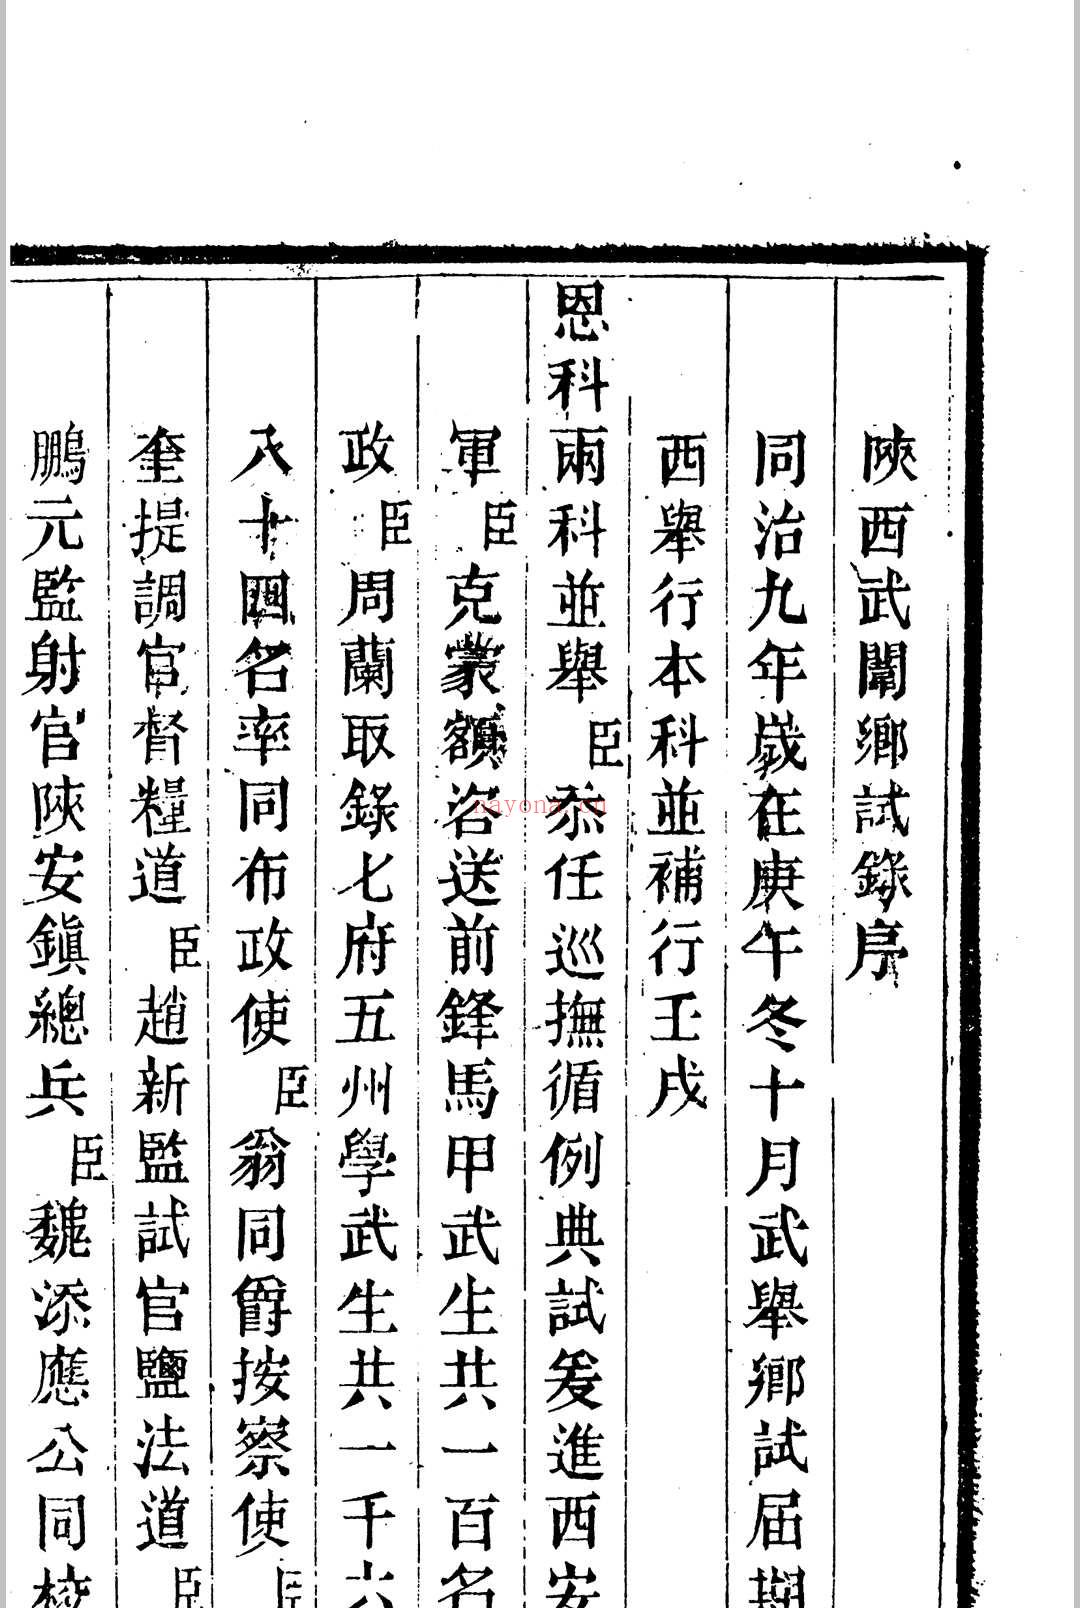 陝西武闈鄉試錄序
同治九年歲在庚午冬十月武舉鄉試屆期
西舉行本科並補行壬戌
恩科兩科並舉臣忝任巡撫循例典試爰進西安
軍臣克蒙額咨送前鋒馬甲武生共一百名
政臣周蘭取錄七府五州學武生共一千六
八十四名率同布政使臣翁同爵按察使臣
奎提調官督糧道臣趙新監試官鹽法道臣
鵬元監射官陝安鎮總兵臣魏添應公同校
nayona.cn